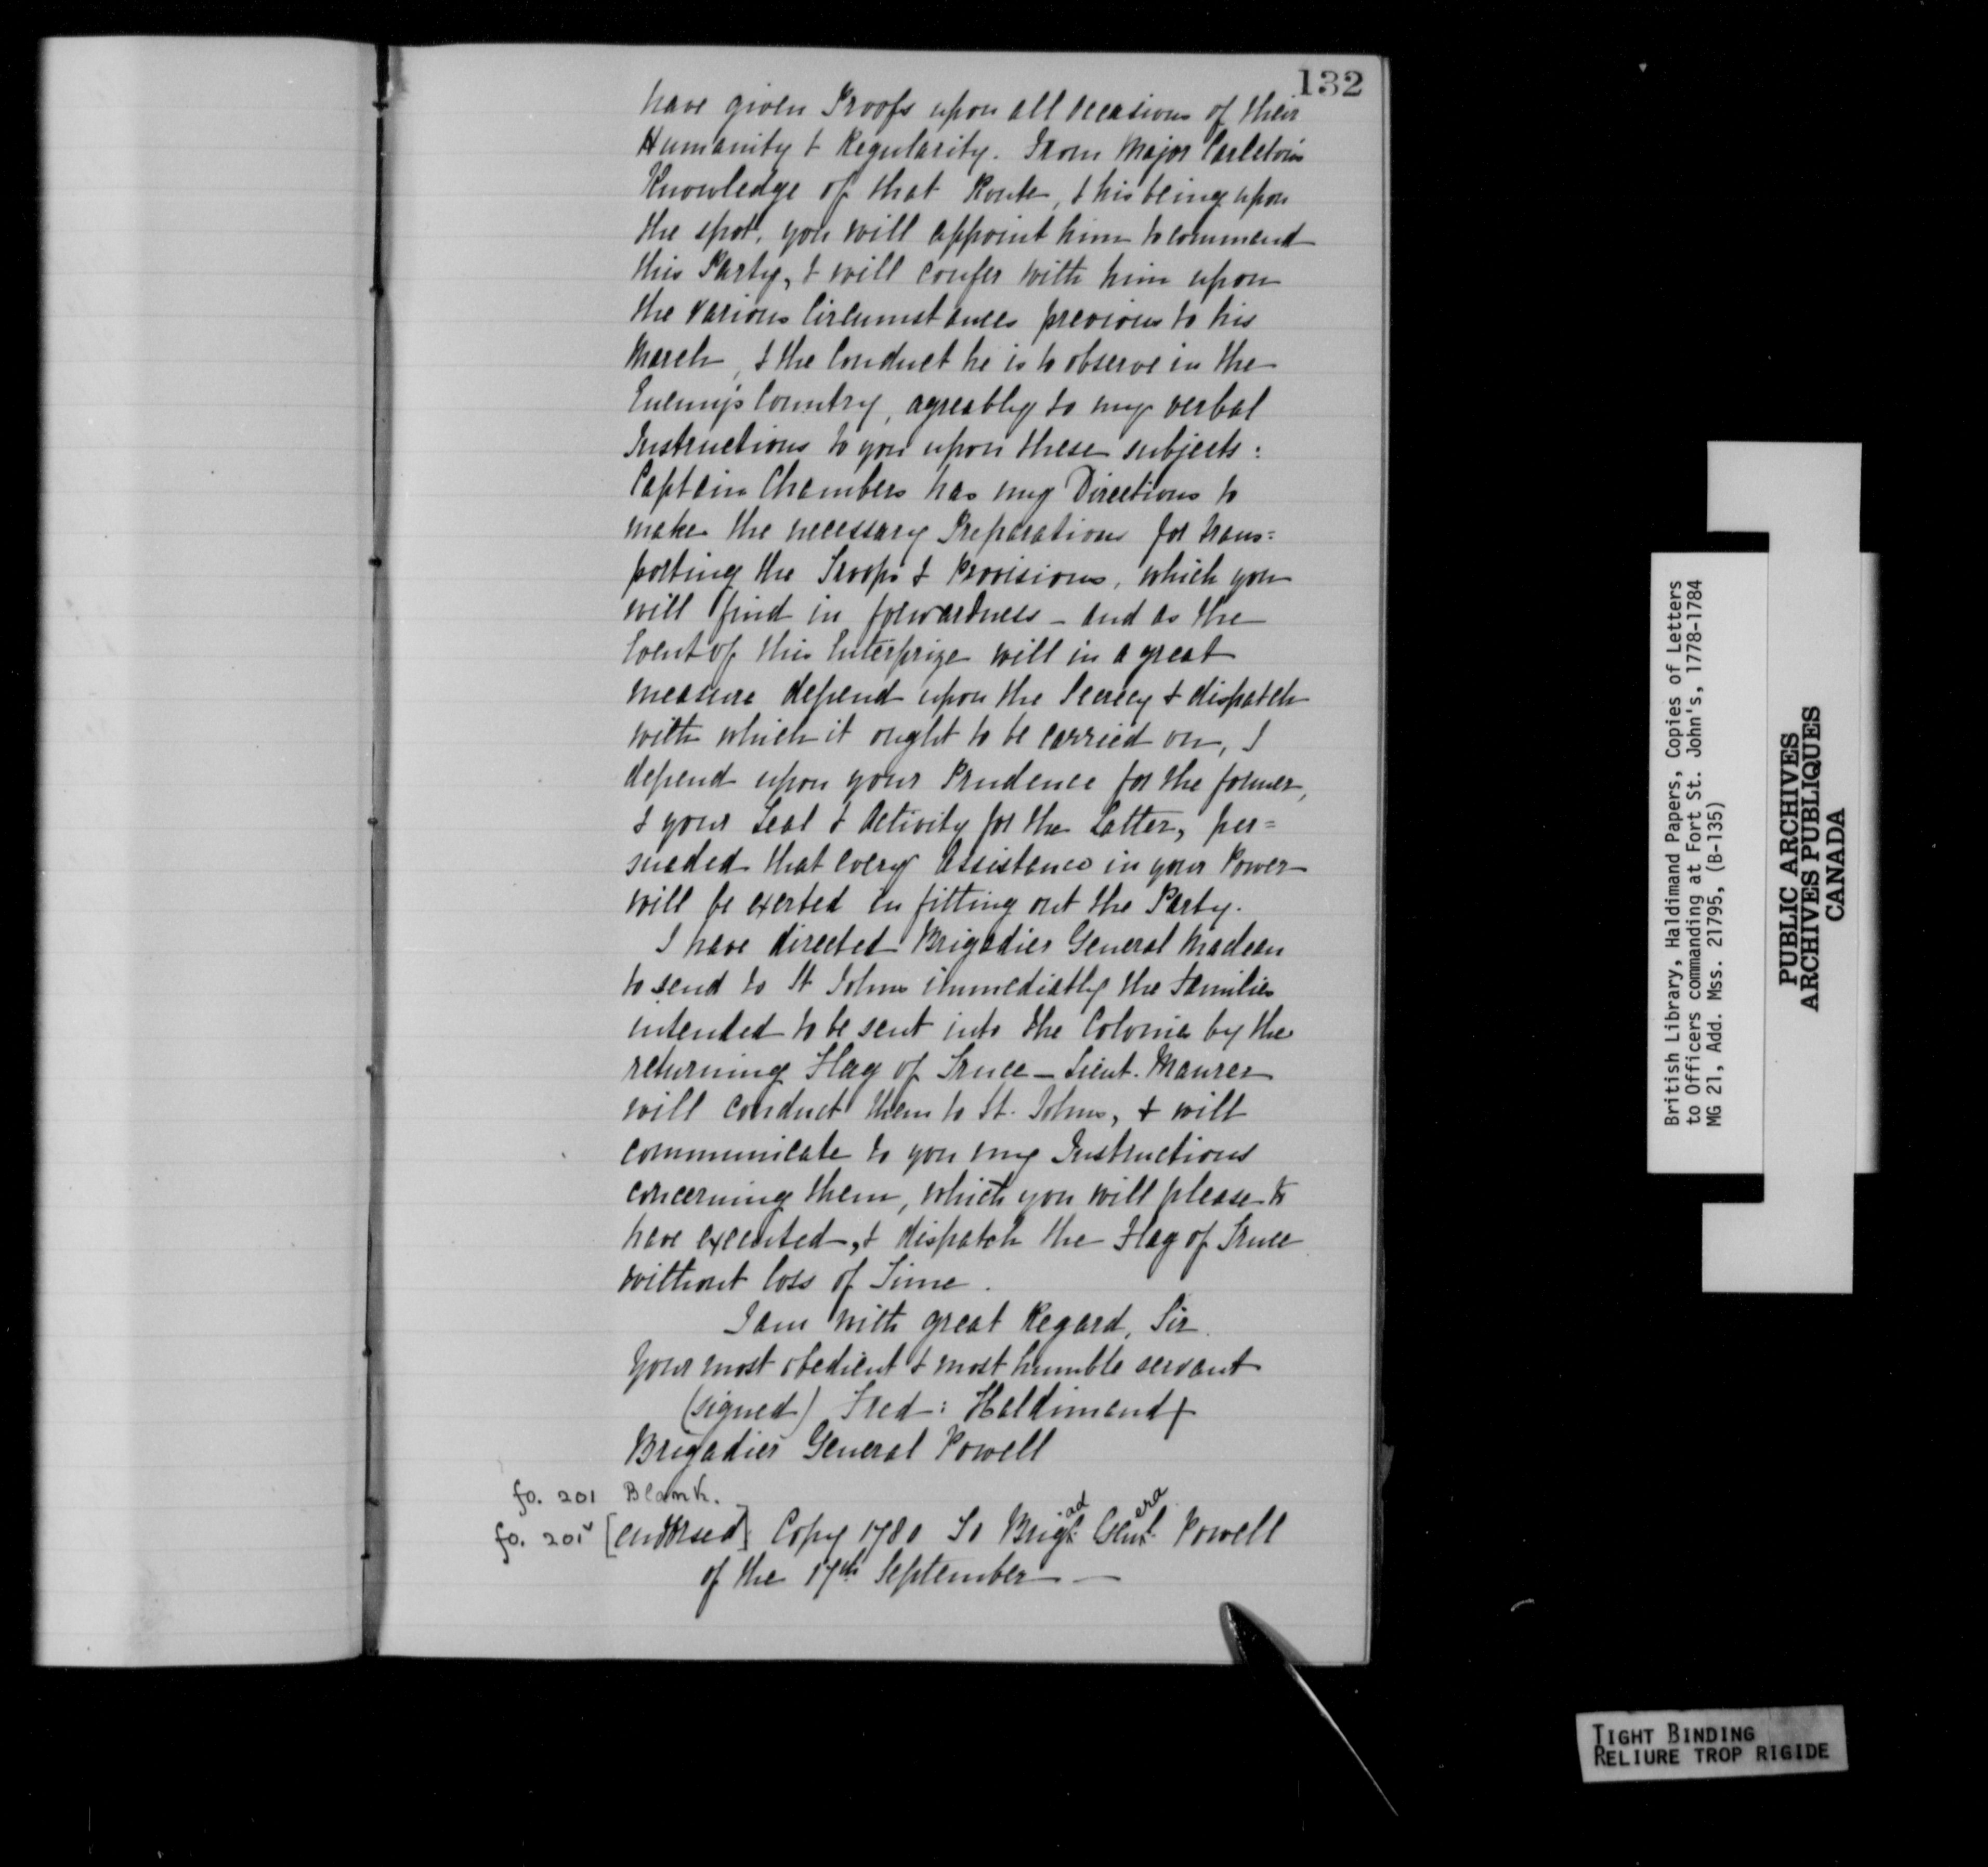 132
have given Proofs upon all occasions of their
Humanity & Regularity. From Major Carleton's
Knowledge of that Route, & his being upon
the spot, you will appoint him to command
this Party, & will confer with him upon
the various Circumstances previous to his
March, & the Conduct he is to observe in the
Enemy's Country, agreably to my verbal
Instructions to you upon these subjects:
Captain Chambers has my Directions to
make the necessary Preparations for trans=
porting the Troops & Provisions, which you
will find in forwardness - and as the
Event of this Enterprize will in a great
measure depend upon the Secrecy & dispatch
with which it ought to be carried on, I
depend upon your Prudence for the former,
& your Zeal & Activity for the Latter, per=
suaded that every Assistance in your Power
will be exerted in fitting out the Party.
I have directed Brigadier General Maclean
to send to St Johns immediatly the Families
intended to be sent into the Colonies by the
returning Flag of Truce - Lieut. Maurer
will conduct them to St. Johns, & will
communicate to you my Instructions
concerning them, which you will please to
have executed, & dispatch the Flag of Truce
without loss of Time.
I am with great Regard, Sir
Your most obedient & most humble servant
(signed) Fred: Haldimand
Brigadier General Powell
fo. 201 Blank.
fo. 201v [endorsed]: Copy 1780 To Brigad. General Powell
of the 17th September —
British Library, Haldimand Papers, Copies of Letters
to Officers commanding at Fort St. John's, 1778-1784
MG 21, Add. Mss. 21795, (B-135)
PUBLIC ARCHIVES
ARCHIVES PUBLIQUES
CANADA
TIGHT BINDING
RELIURE TROP RIGIDE